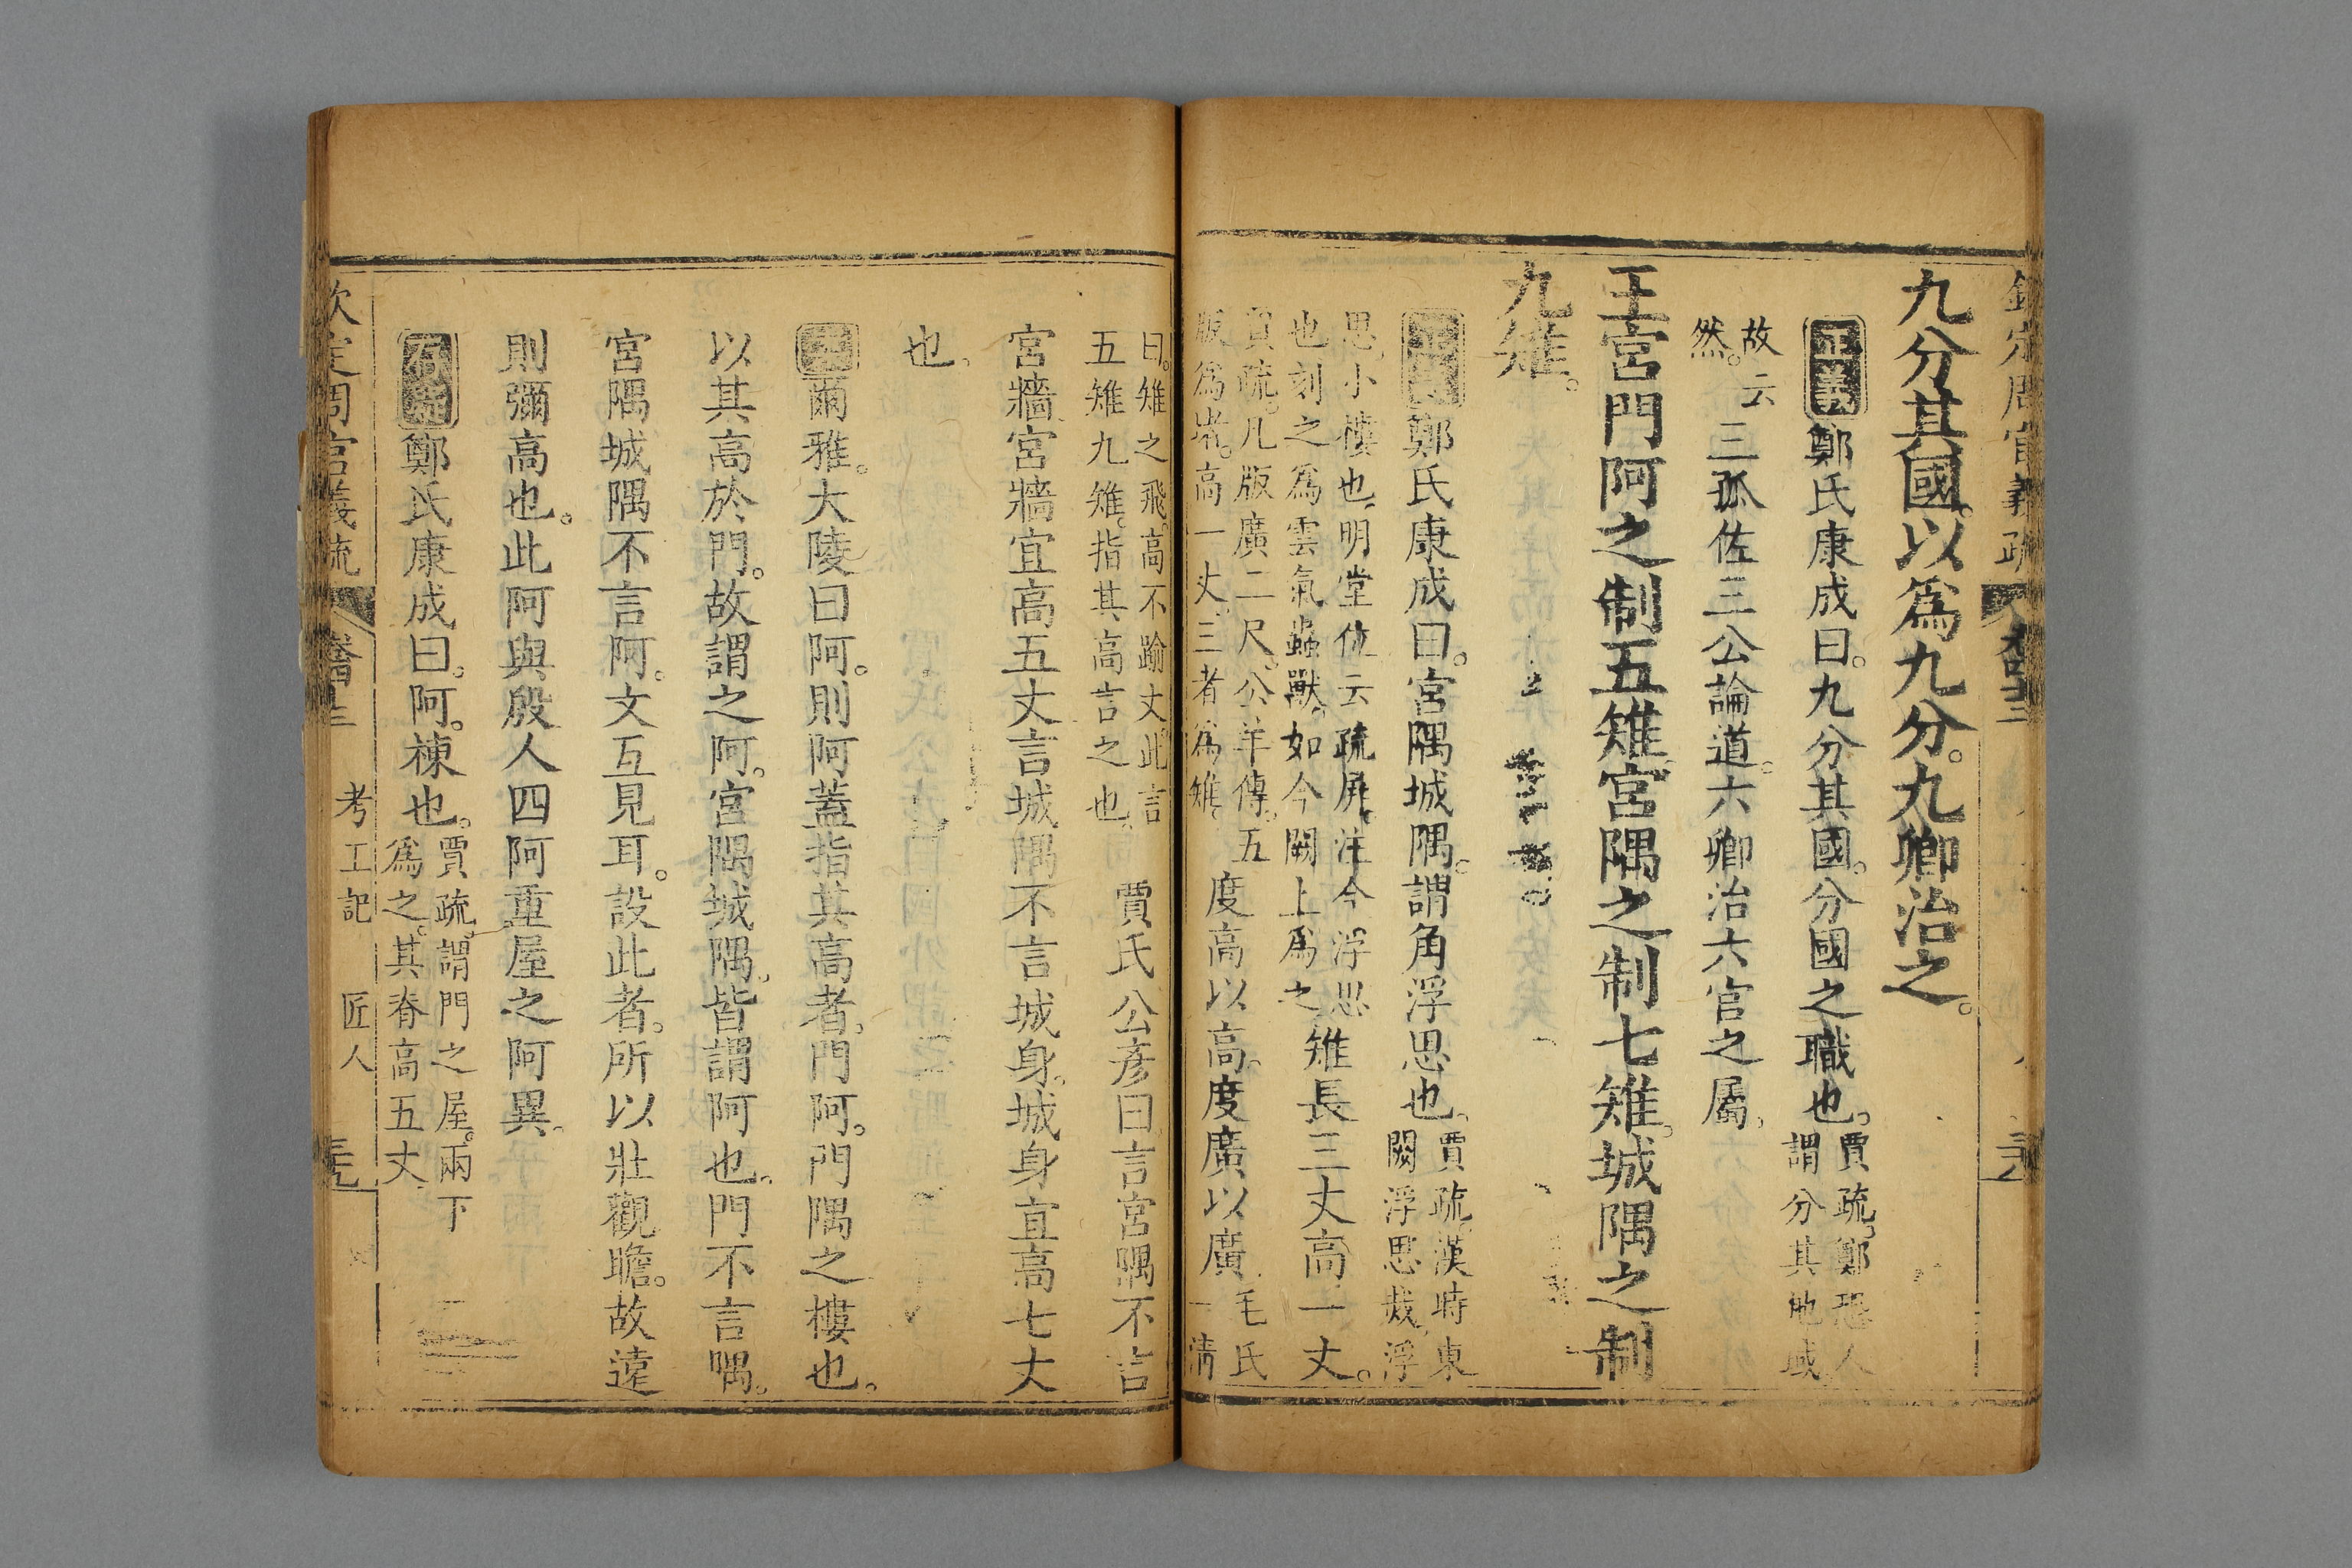 九分其國。以爲九分。九卿治之。
正義鄭氏康成曰。九分其國。分國之職也。賈疏。鄭恐人謂分其地域
故云然。三孤佐三公論道。六卿治六官之屬。
王宮門阿之制五雉。宮隅之制七雉。城隅之制
九雉。
鄭氏康成曰。宮隅城隅。謂角浮思也。賈疏。漢時東闕浮思烖。浮
思。小樓也。明堂位云疏屏。注今浮思也。刻之爲雲氣蟲獸。如今闕上爲之雉長三丈。高一丈。
賈疏。凡版廣二尺。公羊傳。五版爲堵。高一丈。三者爲雉。度高以高。度廣以廣毛氏一清
曰。雉之飛。高不踰丈。此言五雉九雉。指其高言之也。賈氏公彦曰言宮隅不言
宮牆。宮牆宜高五丈言城隅不言城身。城身宜高七丈
也。
爾雅。大陵曰阿。則阿蓋指其高者。門阿。門隅之樓也。
以其高於門。故謂之阿。宮隅城隅。皆謂阿也。門不言隅。
宮隅城隅不言阿。文互見耳。設此者。所以壯觀瞻。故遠
則彌高也。此阿與殷人四阿重屋之阿異。
鄭氏康成曰。阿。棟也。賈疏。謂門之屋。兩下爲之。其脊高五丈。
欽定周官義疏 考工記 匠人